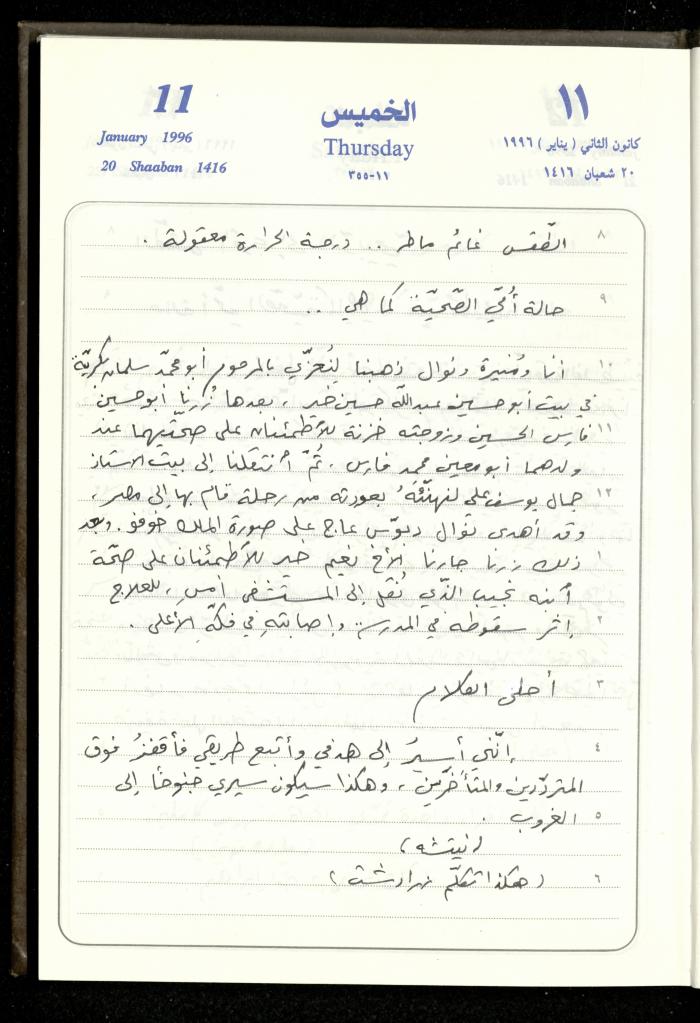 11
January 1996
20 Shaaban 1416
الخميس
Thursday
٣٥٥-١١
١١
كانون الثاني ( يناير ) ١٩٩٦
٢٠ شعبان ١٤١٦
٨ الطّقس غائم ماطر .. درجة الحرارة معقولة .
٩ حالة أُمّي الصّحيّة كما هي ..
١٠ أنا ومُنيرة ونوال ذهبنا لنُعزّي بالمرحوم أبو محمّد سلمان
في بيت أبو حسين عبدالله حسين خير ، بعدها زُرنا أبو حسين
١١ فارس الحسين وزوجته خزنة للأطمئنان على صحّتيهما عند
ولدهما أبو معين محمد فارس . ثُمَّ أنتقلنا إلى بيت الاستاذ
١٢ جمال يوسف علي لنهنّئهُ بعودته من رحلة قام بها إلى مصر ،
وقد أهدى نوال دبّوس عاج على صورة الملك خوفو . وبعد
١ ذلك زرنا جارنا الأخ نعيم خير للأطمئنان على صحّة
أبنه نجيب الذّي نُقل إلى المستشفى أمس ، للعلاج
٢ إثر سقوطه في المدرسة وإصابتهِ في فكّهِ الأعلى .
٣ أحلى الكلام
٤ إنّني أسيرُ إلى هدفي وأتبع طريقي فأقفزُ فوق
المتردّدين والمتأخّرين ، وهكذا سيكون سيري جنوحًا إلى
٥ الغروب .
( نيتشه )
٦ ( هكذا تكلّم زرادشت )